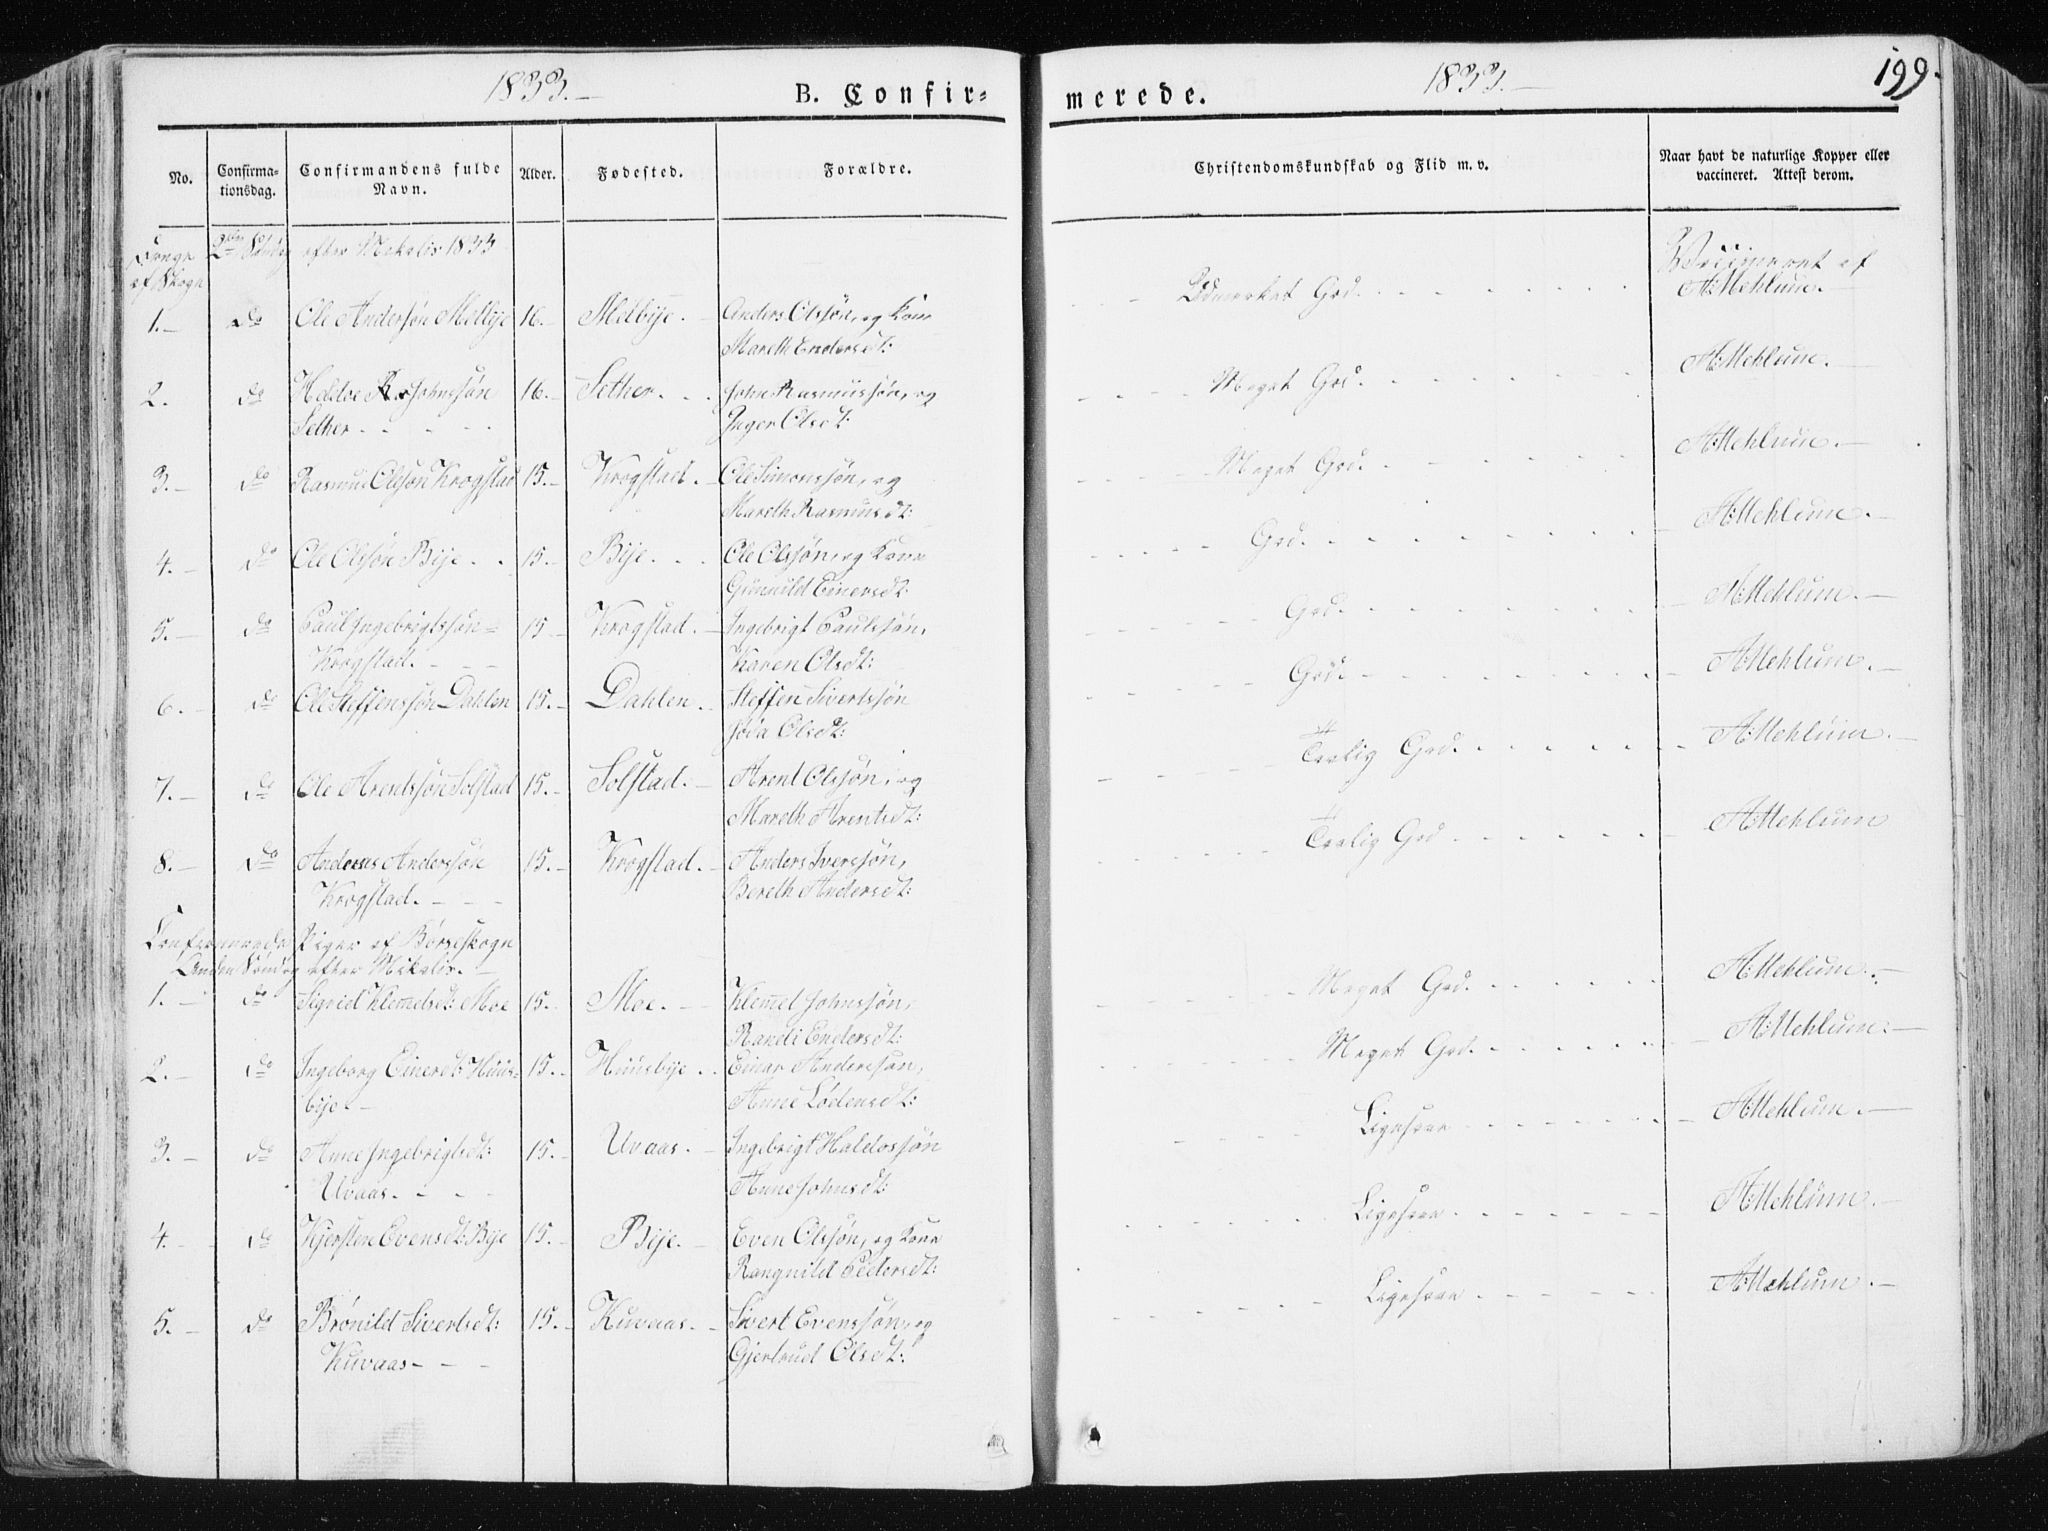 1833.-
B. Confir=
merede.
1833.-
199.
No.
Confirma-
tionsdag.
Confirmandens fulde
Navn.
Alder.
Fødested.
Forældre.
Christendomskundskab og Flid m. v.
Naar havt de naturlige Kopper eller
vaccineret. Attest derom.
Drenge 2den Søndag efter Mikelis 1833
af Skogn
Vaccineret af
1.- do Ole Andersøn Melbye 16.- Melbije.- Anders Olssøn, og Kone
Mareth Endersdt:
Udmerket God. A:Mehlum.-
2. do Haldoe R. Johnssøn 16.- Sether. John Rasmussøn, og
Sether Inger Olsdt:
Meget God. A:Mehlum.-
3.- do Rasmus Olsøn Krogstad 15.- Krogstad.- Ole Simonssøn, og
Mareth Rasmusdt:
Meget God. A:Mehlum.-
4.- do Ole Olsøn Bije 15.- Bije. Ole Olssøn, og Kone
Gunnild Einersdt:
God. A:Mehlum.-
5.- do Paul Ingebrigtssøn= 15 Krogstad.- Ingebrigt Paulssøn,
Krogstad. Karen Olsdt:
God. A:Mehlum.-
6.- do Ole Steffenssøn Dahlen 15.- Dahlen. Steffen Sivertssøn
Olsdt:
God. A:Mehlum.-
7.- do Ole Arentssøn Solstad 15.- Solstad.- Arent Olssøn, og
Mareth Arentsdt:
Temlig God. A:Mehlum.-
8.- do Anderas Anderssøn 15.- Krogstad.- Anders Iverssøn,
Krogstad. Bereth Andersdt:
Temlig God A:Mehlum
Confirmerede Piger af Børseskogn
Anden Søndag efter Mikelis.-
1.- do Sigrid Klemetsdt: Moe 15.- Moe.- Klemet Johnssøn,
Randi Endersdt:
Meget God. A:Mehlum.-
2.- do Ingeborg Einersdt: Huus= 15.- Huusbije. Einar Anderssøn,
bije.- Anne Lødensdt:
Meget God. A:Mehlum.-
3.- do Anne Ingebrigtsdt: 15.- Uvaas.- Ingebrigt Haldossøn
Uvaas. Anne Johnsdt:
Ligesaa A:Mehlum.-
4.- do Kjersten Evensdt: Bije 15.- Bije.- Even Olssøn, og Kone
Rangnild Pedersdt:
Ligesaa. A:Mehlum.-
5.- do Brønild Sivertsdt: 15.- Kuvaas.- Sivert Evenssøn, og
Kuvaas- Gjertrud Olsdt:
Ligesaa A:Mehlum.-